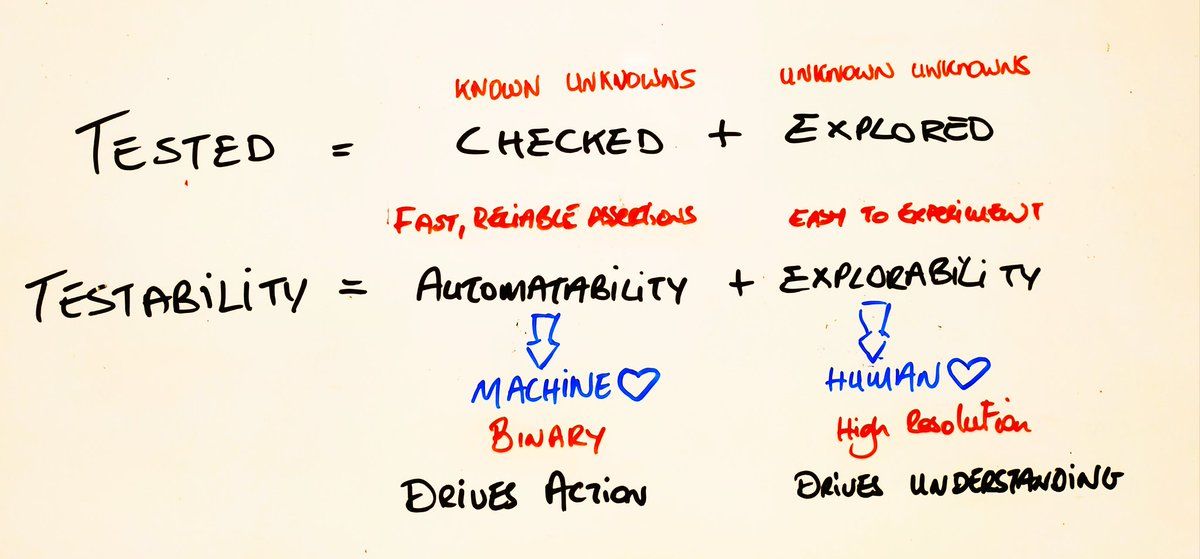 KNOWN UNKNOWNS UNKNOWN UNKNOWNS
TESTED = CHECKED + EXPLORED
FAST, RELIABLE ASSERTIONS EASY TO EXPERIMENT
TESTABILITY = AUTOMATABILITY + EXPLORABILITY
MACHINE HUMAN
BINARY High Resolution
DRIVES ACTION DRIVES UNDERSTANDING